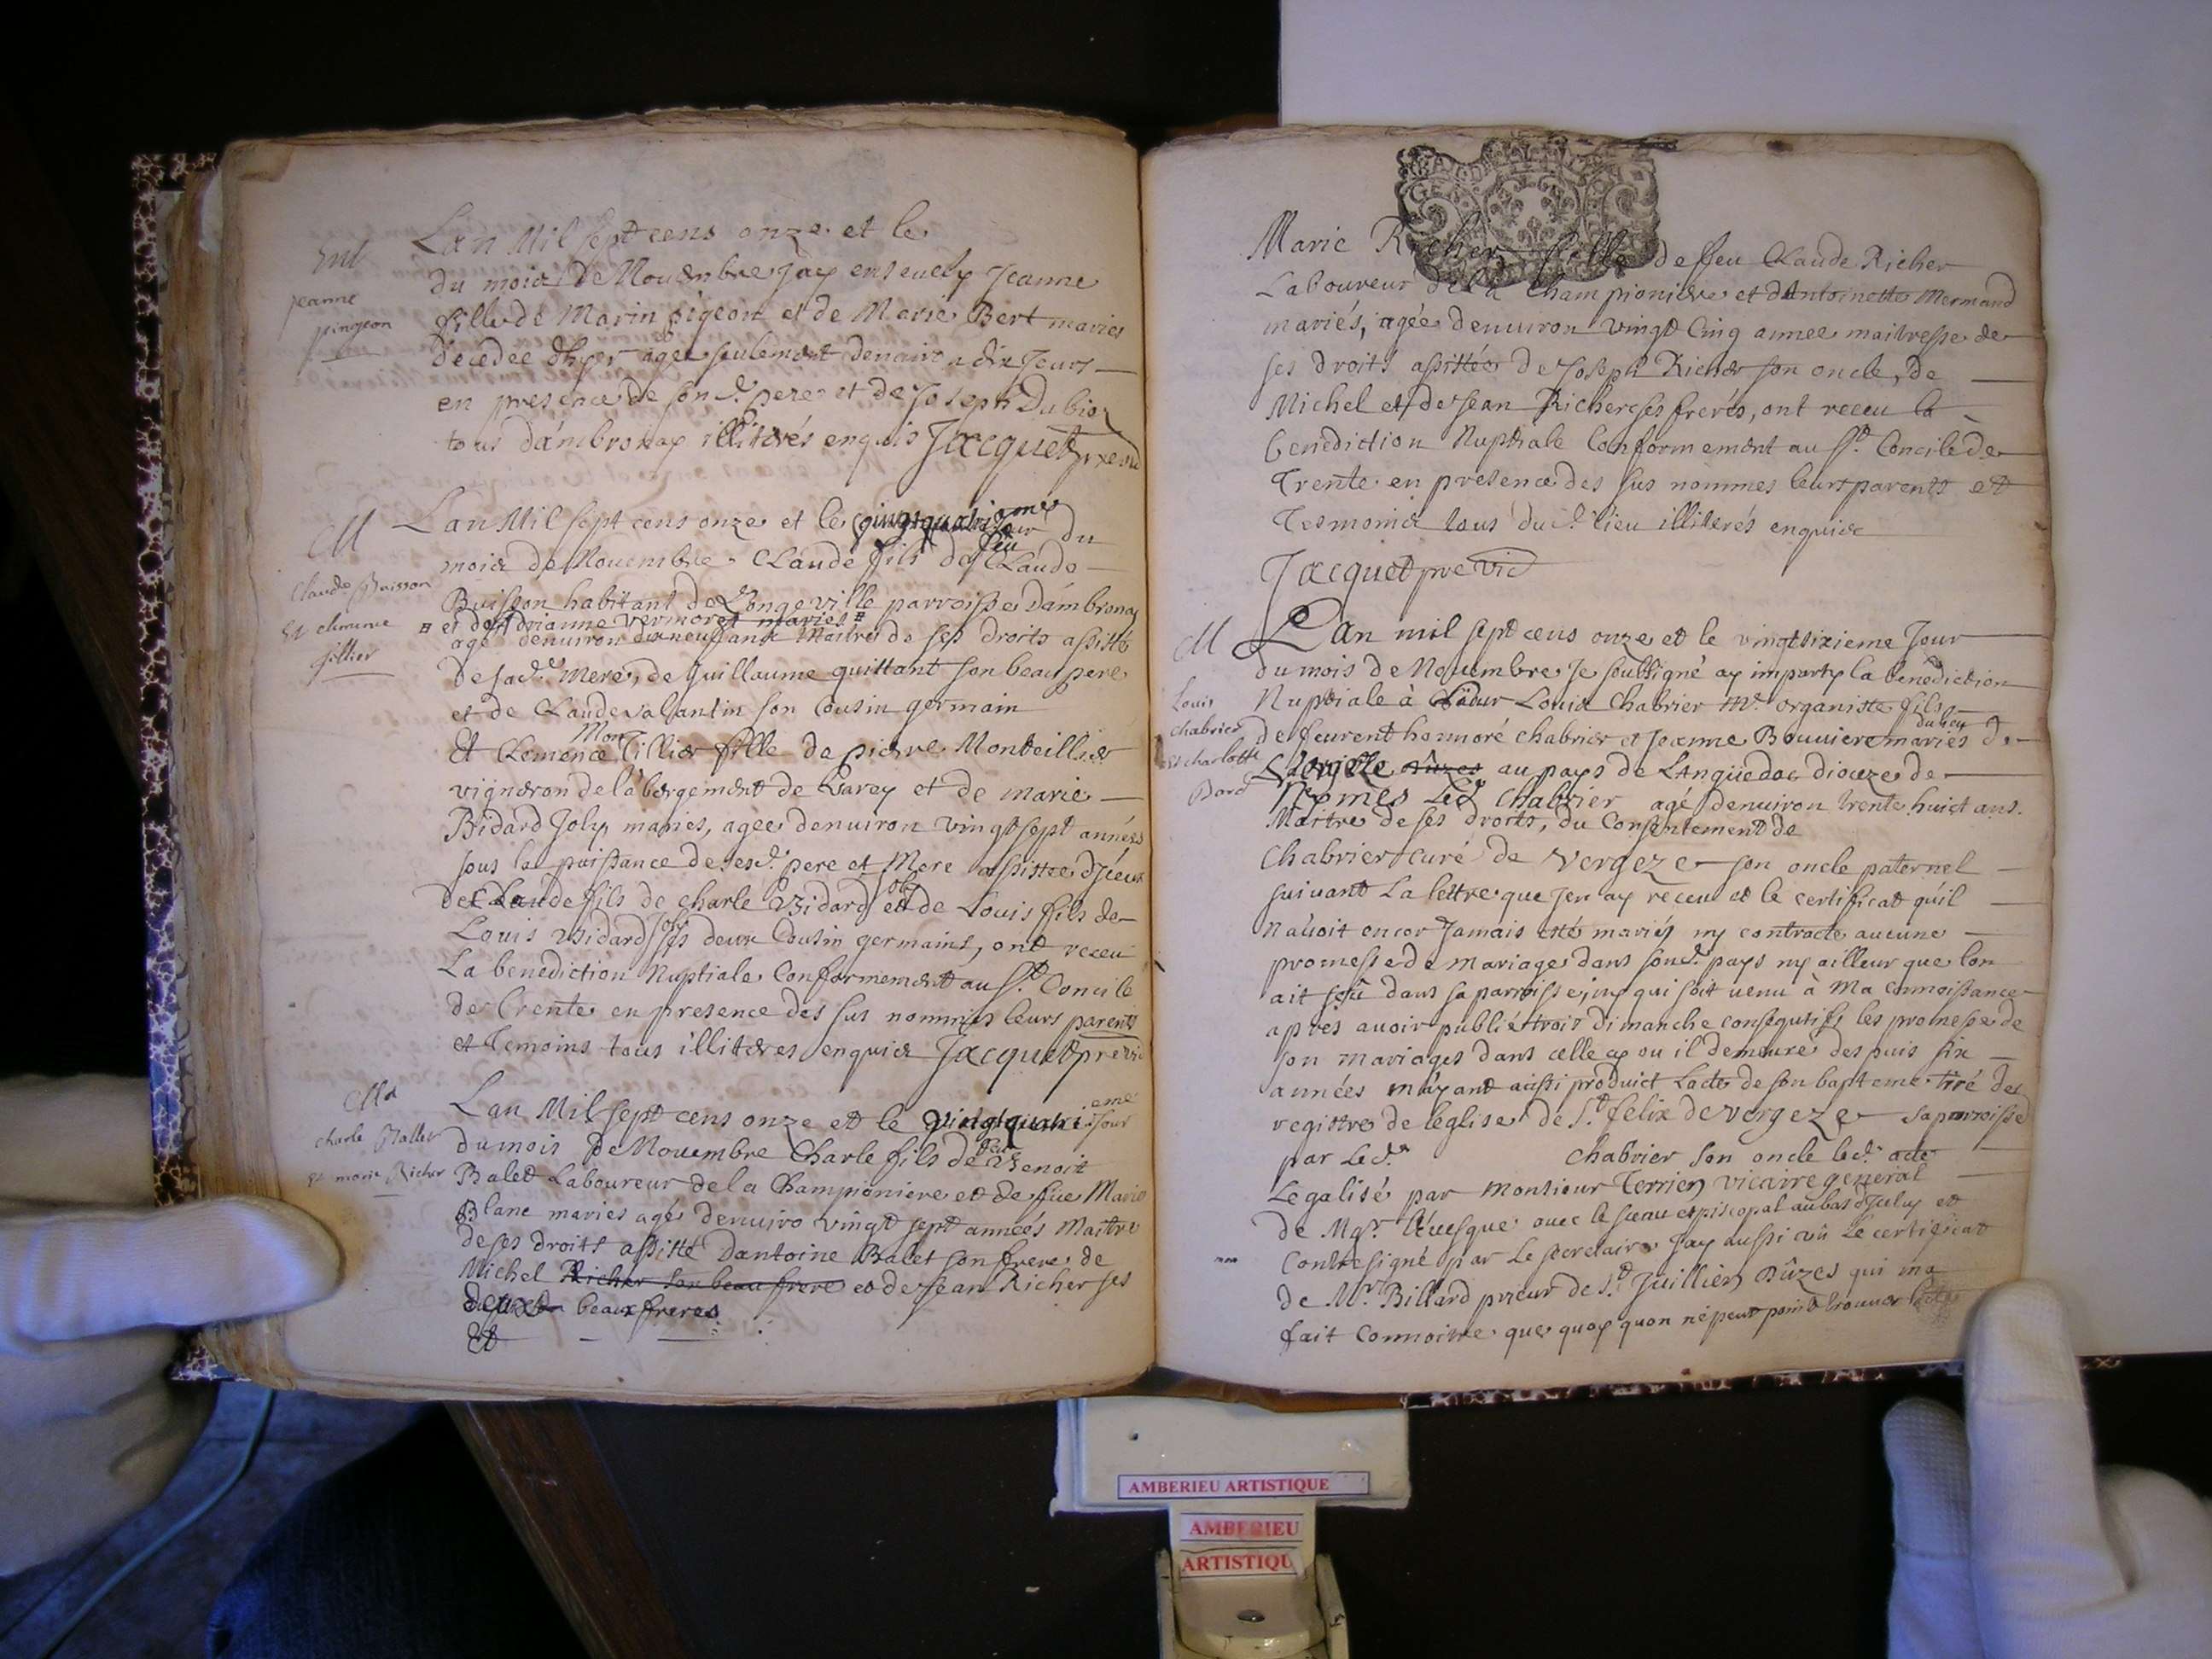 Ent
Jeanne
pingeon
Lan Mil sept cens onze et le
du mois De Nouembre Jay enseuely Jeanne
fille de Marin pigeon et de Marie Bert maries
decedee dhyer agee seulement denuiro a dix Jours
en presence de son d. pere et de Joseph Dubio
tous dámbronay illiterés enquis Jacquet
M
Claude Buisson
et clemence
tillier
Lan Mil sept cens onze et le Jour du
mois de Nouembre Claude fils de feu Claude
Buisson habitant de Longeville parroisse Dámbronay
et de Adrianne Vermoret maries
agé denuiron dixneuf ans Maitre de ses droits assisté
de sad.e Mere, de Guillaume quittant son beau pere
et de Claude valantin son Cousin germain
Et Clemence Montillier fille de pierre Monteillier
vigneron de l'abergement de Varey et de marie
Bidard Joly maries, agee denuiron vingt sept années
sous la puissance de sesd. pere et Mere assistee d'Iceux
de Claude fils de charle Bidard et de Louis fils de
Louis Bidard Joly ses deux Cousin germains, ont receu
La benediction Nuptiale Conformement au st. Concile
de Trente en presence des sus nommés leurs parents
et Temoins tous illiteres enquis Jacquet pre vic
Ma
charle Ballet
et marie Richer
Lan Mil sept cens onze et le vingt quatrieme Jour
du mois De Nouembre Charle fils de feu Benoit
Balet Laboureur de la Championiere et de fue Marie
Blanc maries agé denuiro vingt sept années Maitre
de ses droits assisté Dantoine Balet son frere, de
Michel Richer son beau frere et de Jean Richer ses
deux beaux freres
Et
Marie Richer fille de feu Claude Richer
Laboureur de la Championiere et dAntoinette Mermand
mariés, agée denuiron vingt Cinq annee maitresse de
ses droits assistée de Joseph Richer son oncle, de
Michel et de Jean Richer ses freres, ont receu la
benediction Nuptiale Conformement au st. Concile de
Trente en presence des sus nommes leurs parents et
Tesmoins tous du d. lieu illiterés enquis
Jacquet pre vic
M
Louis
chabrier
et charlotte
Bord
Lan mil sept cens onze et le vingtsixieme Jour
du mois de Nouembre Je soussigné ay imparty la benediction
Nuptiale à Louis Chabrier Me. organiste fils
de feu honnoré chabrier et Jeanne Bouuiere maries du lieu de
au pays de Languedoc dioceze de
Nismes Led. chabrier agé denuiron trente huict ans.
Maitre de ses droits, du Consentement de
Chabrier curé de Vergeze son oncle paternel
suivant La lettre que jen ay receu et le certificat quil
n'auoit encor Jamais esté marié ny contracté aucune
promesse de mariage dans sond. pays ny ailleur que lon
ait sceu dans sa parroisse, ny qui soit uenu à Ma connoissance
apres auoir publié trois dimanche consequtifs les promesse de
son mariages dans celle cy ou il demeure despuis six
années mayant aussi produict Lacte de son bapteme tiré des
registre de leglise de St. felix de vergeze sa parroisse
par Led. chabrier son oncle led. acte
Legalisé par Monsieur Terrien vicaire general
de Mgr. léuesque auec le sceau episcopal au bas dJceluy et
Contresigné par Le secretaire Jay aussi vû Le certificat
de Mr. Billard prieur de St. Juillien Dûzes qui ma
fait connoitre que quoy quon ne peut point trouuer lacte
AMBERIEU ARTISTIQUE
AMBERIEU
ARTISTIQU